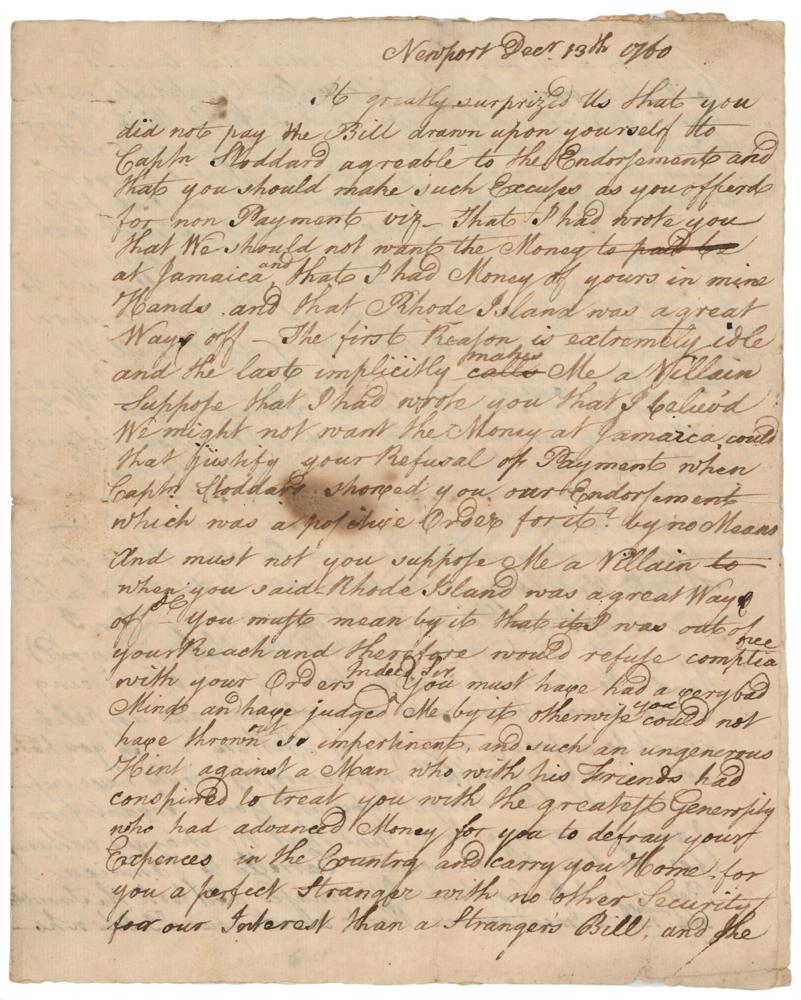 Newport Decr. 13th 1760
It greatly surprized Us that you
did not pay the Bill drawn upon yourself to
Captn Stoddard agreable to the Endorsement and
that you should make such Excuses as you offerd
for non Payment viz- That I had wrote you
that We should not want the Money to paid be
at Jamaica and that I had Money of yours in mine
Hands and that Rhode Island was a great
Way off - The first Reason is extremely idle
and the last implicitly calls makes Me a Villain
Suppose that I had wrote you that I believ'd
We might not want the Money at Jamaica, could
that justify your Refusal of Payment when
Captn. Stoddard showed you our Endorsement
which was a positive Order for it? by no Means
And must not you suppose Me a Villain to
when you said Rhode Island was a great Way
off You must mean by it that it I was out of
your Reach and therefore would refuse compliance
with your Orders Indeed Sir You must have had a very bad
Mind and have judged Me by it otherwise you could not
have thrown out so impertinent, and such an ungenerous
Hint against a Man who with his Friends had
conspired to treat you with the greatest Generosity
who had advanced Money for you to defray your
Expences in the Country and carry you Home, for
you a perfect Stranger with no other Security
for our Interest than a Strangers Bill, and the